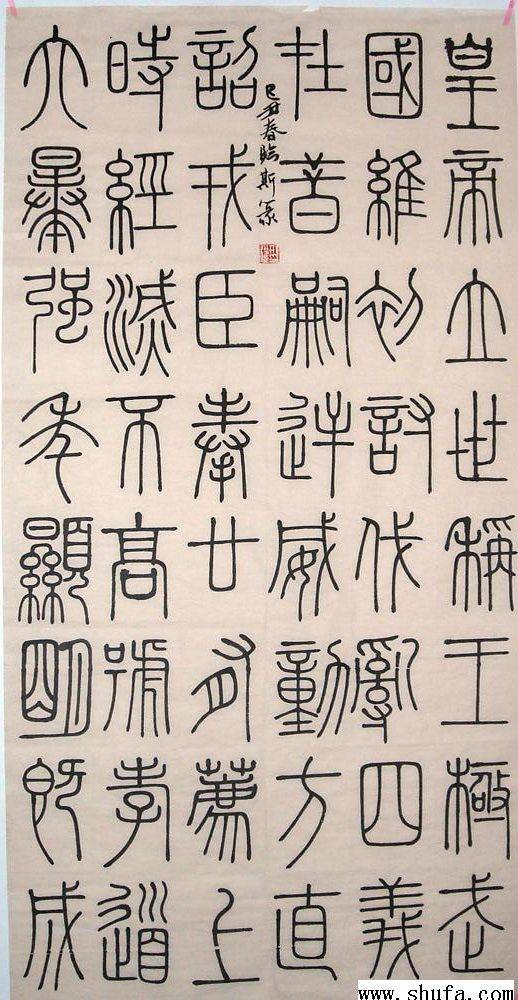 皇帝立世稱王極武
國維初討伐亂四義
在昔嗣逆威動方直
詔戎臣奉廿有薦上
時經滅不高號孝道
六暴強年顯明既成
己丑春臨斯篆
www.shufa.com